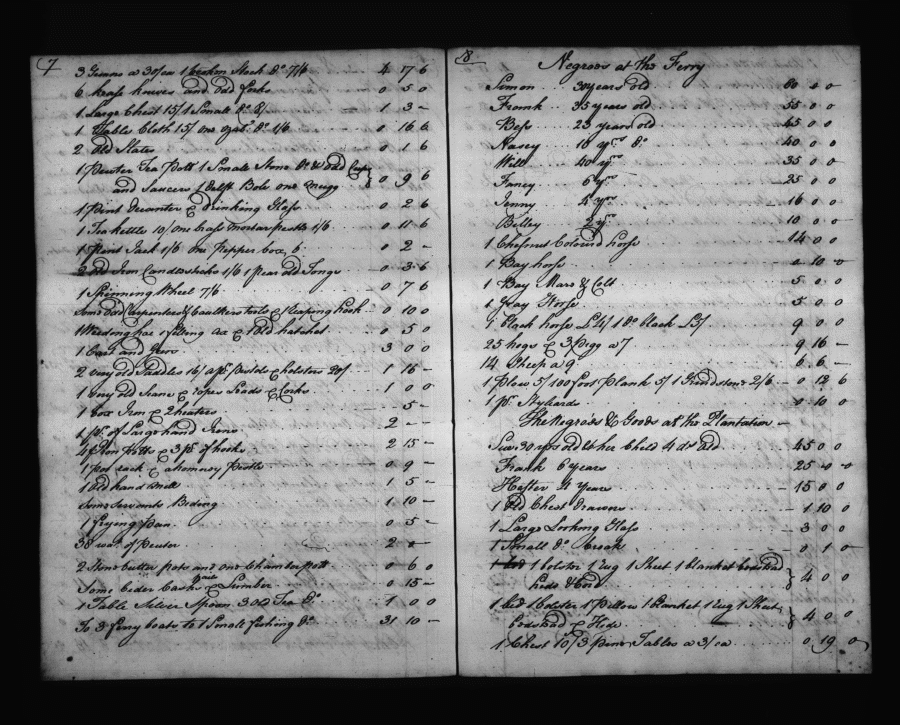 7
3 Guns a 30/ea 1 broken Stock Do 7/6 4 7 6
6 knives and old forks 0 5 0
1 Large Chest 15/ 1 Small Do 8/ 1 3 -
1 Table Cloth 15/ one Do 1/6 0 16 6
2 Old Slates 0 1 6
1 Pewter Tea Pott 1 Small Stone Do & old Cups
and Saucers 1 Delft Bole one Mugg 0 9 6
1 Pint Decanter & Drinking Glass 0 2 6
1 Tea kettle 10/ one brass mortar pestle 1/6 0 11 6
1 Pint Jack 1/6 one Pepper box 6 0 2 -
2 old Iron Candlesticks 1/6 1 pear old Tongs 0 3 6
1 Spinning Wheel 7/6 0 7 6
Some Old Carpenters & Coulters tools & Reaping hook 0 10 0
1 Weeding hoe 1 falling ax & 1 Old hatchet 0 5 0
1 Cart and Geers 3 0 0
2 very old Saddles 16/ a pr Pistols & holsters 20/ 1 16 -
1 very old Seane & ropes Leads & Corks 1 0 0
1 box Iron & 2 heaters - 5 -
1 pr of Large hand Irons 2 - -
4 Iron potts & 3 pr of hooks 2 15 -
1 pot rack & a hominy Pestle 0 9 -
1 Old hand Mill 1 5 -
Some Servants Biding 1 10 -
1 frying Pan 0 5 -
38 wt of Peuter 2 0 -
2 Stone butter pots and one Chamber pott 0 6 0
Some Ceder Barks Pails & Lumber 0 15 -
1 Table Silver Spoon 3 Old Tea Do 1 0 0
To 3 ferry boats to 1 Small fishing Do 31 10 -
8
Negroes at the Ferry
Simon 30 years old 60 0 0
Frank 35 years old 55 0 0
Bess 23 years old 45 0 0
Nasey 18 yrs Do 40 0 0
Will 40 yrs 35 0 0
Fancy 6 yrs 25 0 0
Jenny 4 yrs 16 0 0
Billey 2 yrs 10 0 0
1 Chesnut Colored horse 14 0 0
1 Bay horse 2 10 0
1 Bay Mare & Colt 5 0 0
1 Gray Horse 5 0 0
1 black horse £4/ 1 Do black £5/ 9 0 0
25 hogs & 3 Pigg a 7 9 16 -
14 Sheep a 9 6 6 -
1 Plow 5/ 100 foot Plank 5/ 1 Grindstone 2/6 0 12 6
1 pr Styliards 0 10 0
The Negroes & Goods at the Plantation
Sue 30 yrs old & her Child 4 ds Old 45 0 0
Frank 6 years 25 0 0
Hester 4 years 15 0 0
1 Old Chest drawers 1 10 0
1 Large Looking Glass 3 0 0
1 Small Do broak 0 1 0
1 bed 1 bolster 1 rug 1 Sheet 1 blanket bedstead
hide & Cord 4 0 0
1 bed 1 bolster 1 Pillow 1 blanket 1 rug 1 Sheet
bedstead & Hide 4 0 0
1 Chest 10/ 3 pine Tables a 3/ea 0 19 0